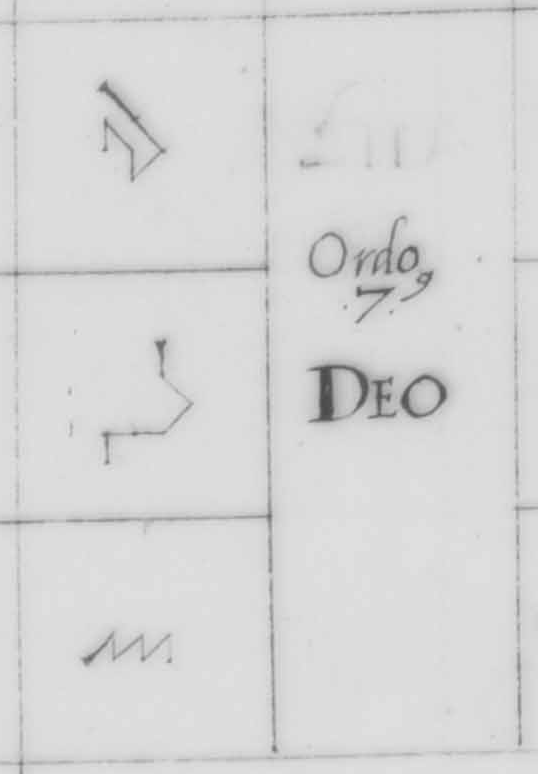 Ordo,
.7.⁹
DEO